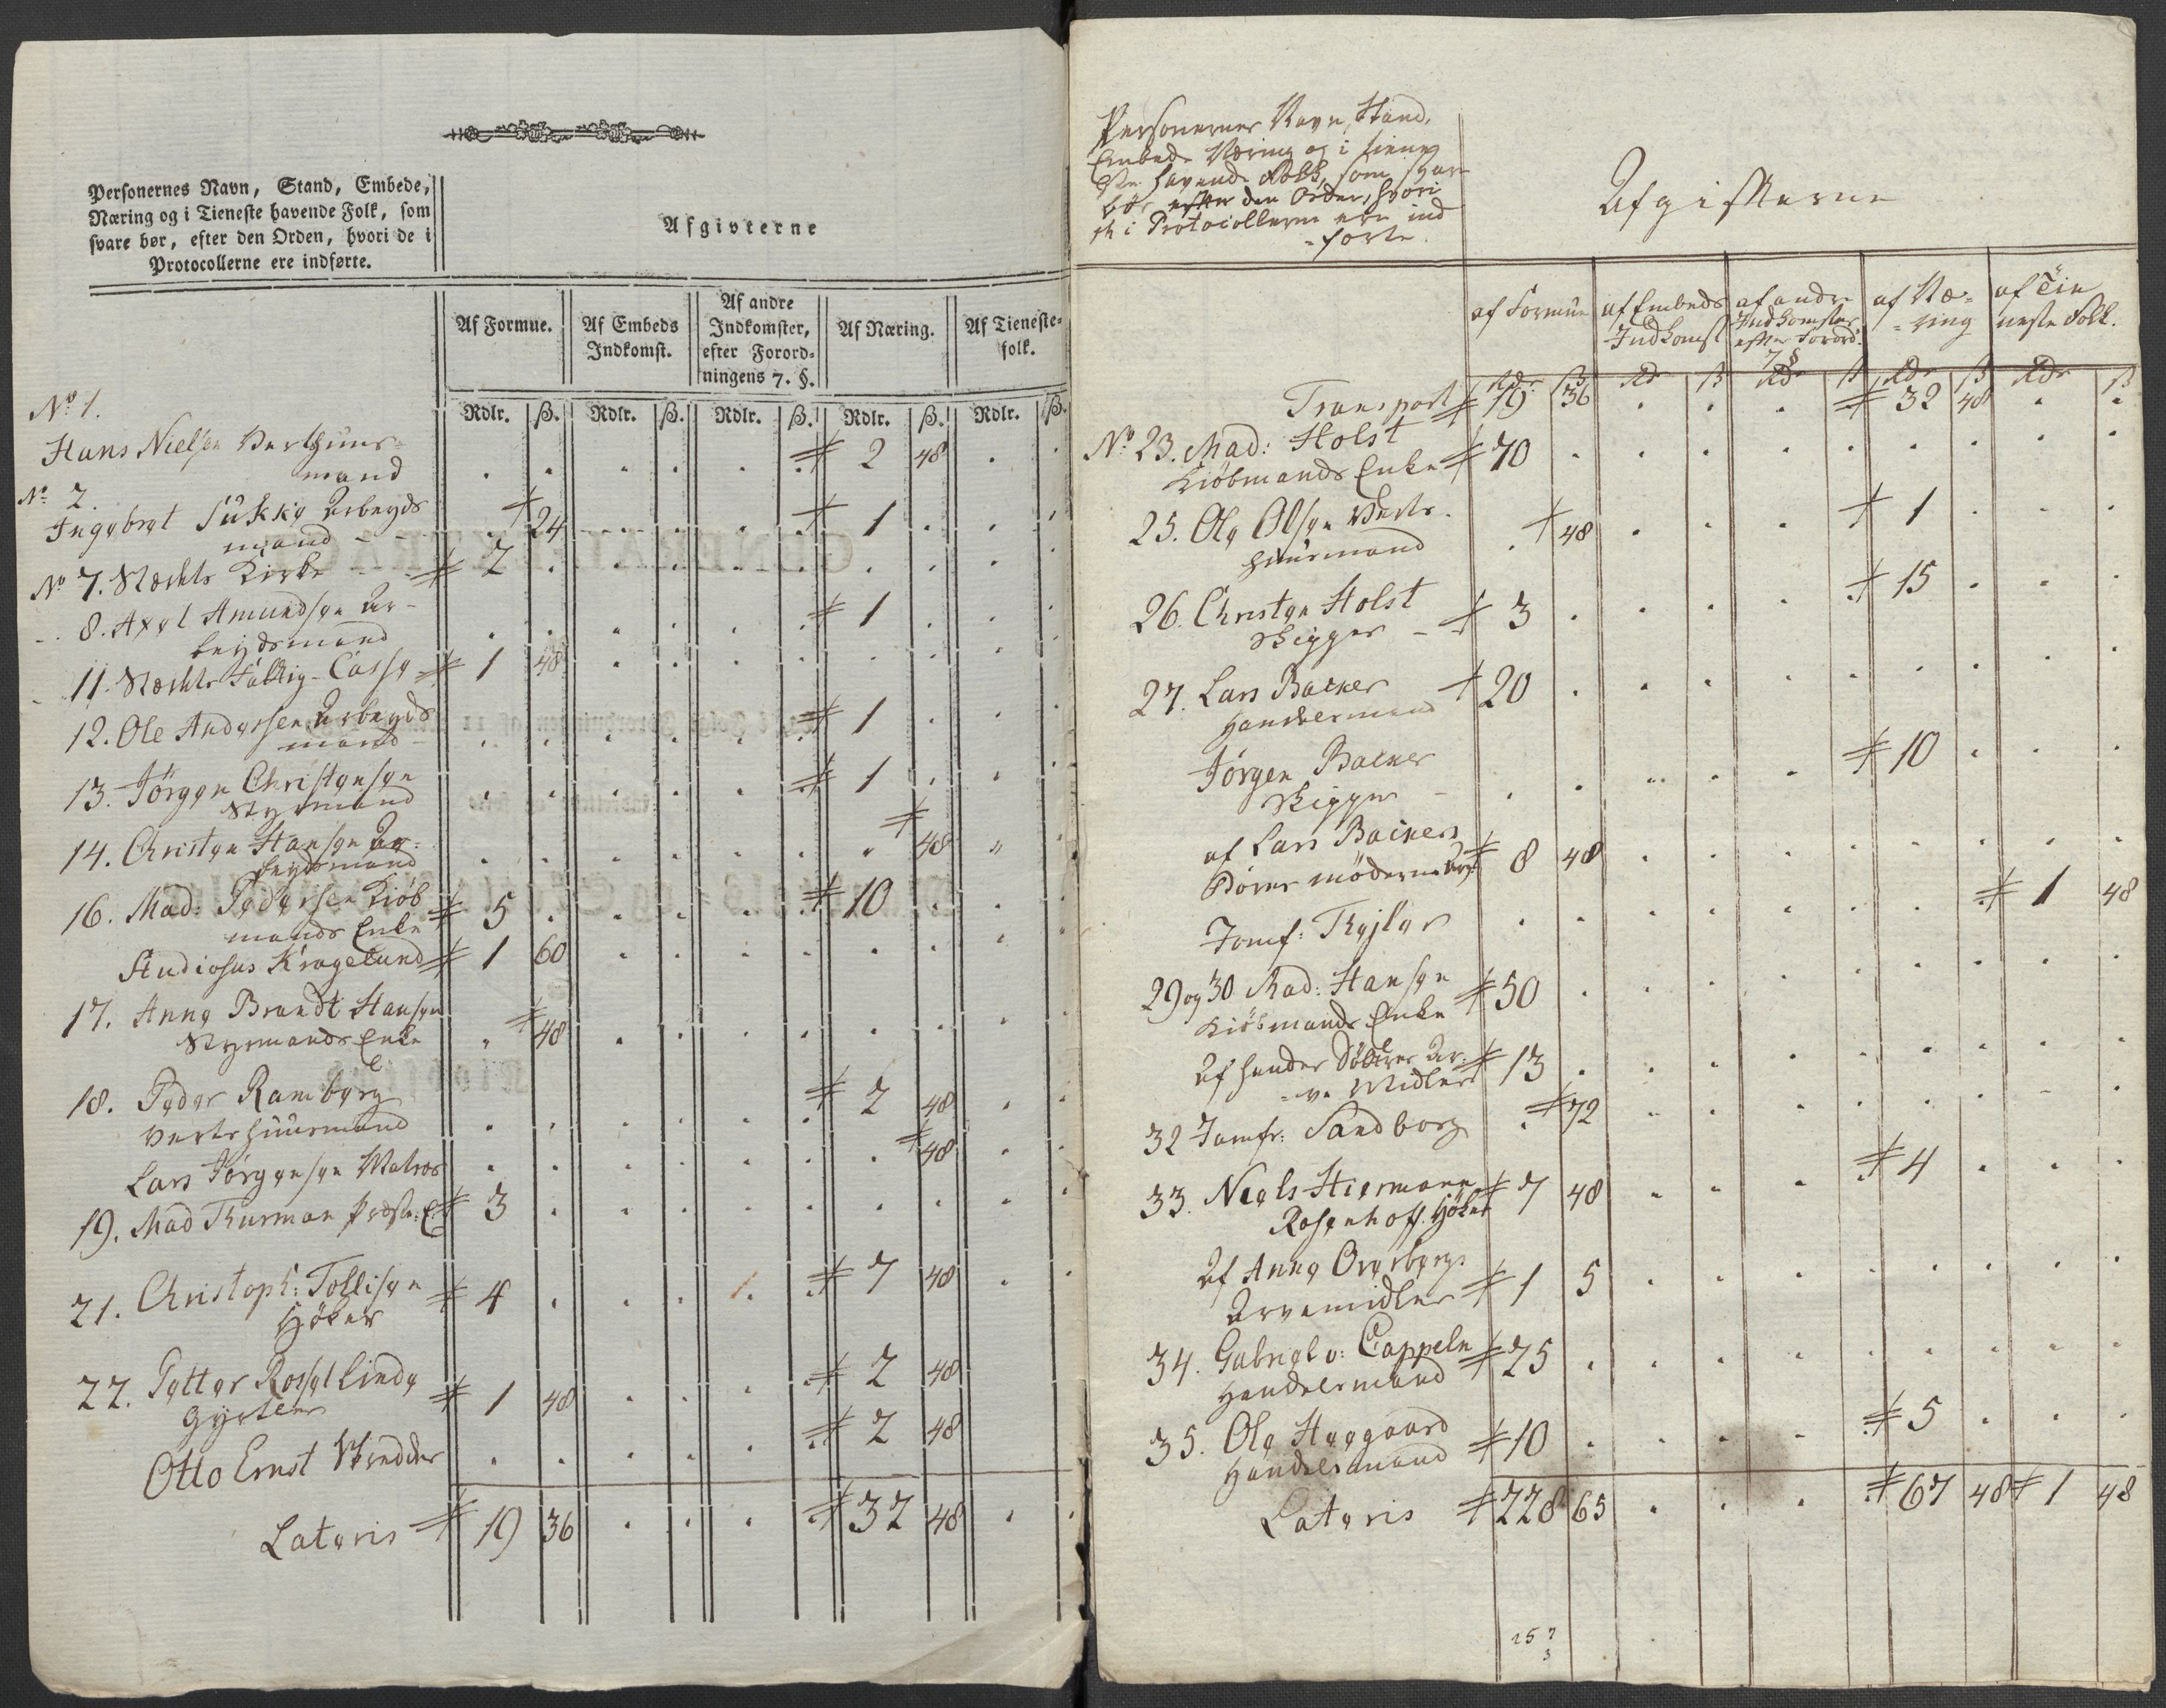 Personernes Navn, Stand, Embede,
Næring og i Tieneste havende Folk, som
svare bør, efter den Orden, hvori de i
Protocollerne ere indførte.
Afgivterne
Af Formue.
Af Embeds
Indkomst.
Af andre
Indkomster,
efter Forord-
ningens 7. §.
Af Næring.
Af Tieneste-
folk.
Rdlr. ß. Rdlr. ß. Rdlr. ß. Rdlr. ß. Rdlr. ß.
No 1.
Hans Nielsen Vertshuus-
mand 2 48
No 2.
Ingebret Sukke Arbeyds
mand 24 1
No 7. Næskts Kirke 2
8. Axel Amundsen Ar-
beydsmand 1
11. Næskts Fattig-Casse 1 48
12. Ole Andersen Arbeyds
mand 1
13. Jörgen Christensen
Styrmand 1
14. Christen Hansen Ar-
beydsmand 48
16. Mad: Pedersen Kiöb
mands Enke 5 10
Studiosus Kragelund 1 60
17. Anne Brandt Hansen
Styrmands Enke 48
18. Peder Ramberg
Vertshuusmand 2 48
Lars Jörgensen Matros 48
19. Mad Thurman Præste E. 3
21. Christoph: Tollisen
Höker 4 7 48
22. Petter Rossellinde
Gjørtler 1 48 2 48
Otto Ernst 2 48
Lateris 19 36 32 48
Personernes Navn, Stand,
Embede Næring og i Tiene
ste havende Folk, som svare
bör efter den Orden, hvori
de i Protocollerne ere ind
-förte.
Afgifterne
af Formue
af Embeds
Indkomst
af andre
Indkomster
efter Forord:
7 §
af Næ-
-ring
af Tie
neste Folk.
Rdr ß Rdr ß Rdr ß Rdr ß Rdr ß
Transport 19 36 32 48
No 23. Mad: Holst
Kiöbmands Enke 70
25. Ole Olsen Verts-
huusmand 48 1
26. Christen Holst
Skipper 3 15
27. Lars Backer
Handelsmand 20
Jörgen Backer
Skipper 10
af Lars Backers
Börns möderne Arv 8 48
Jomf: Thejler 1 48
29 og 30 Mad: Hansen
Kiöbmands Enke 50
Af hendes Døttres Ar-
-ve Midler 13
32 Jomfr: Sandborg 72
33. Niels Hiermann
Rosenhoff. Höker 7 48 4
Af Anne Overbergs
Arvemidler 1 5
34. Gabriel v: Cappeln
Handelsmand 25
35. Ole Heegaard
Handelsmand 10 5
Lateris 228 65 67 48 1 48
25 7
3